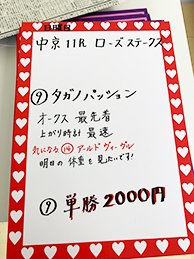 中京11R ローズステークス
⑨タガノパッション
オークス 最先着
上がり時計 最速
気になる ⑭ アールドヴィーヴル
明日の 体重を見たいです!
⑨ 単勝2000円